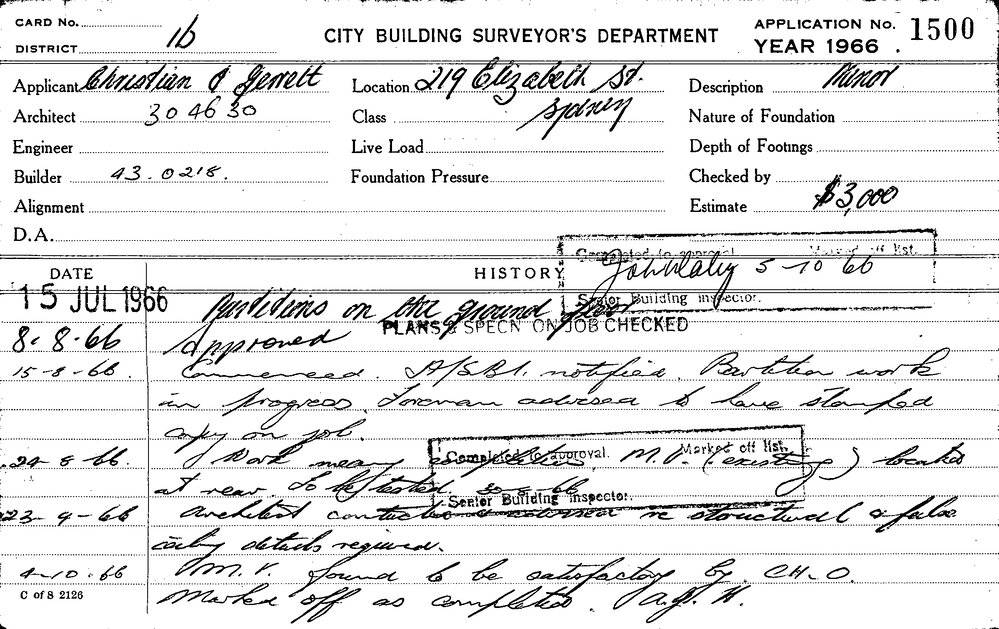 CARD No.
DISTRICT 1b
CITY BUILDING SURVEYOR'S DEPARTMENT
APPLICATION No. 1500
YEAR 1966 .
Applicant Christian & Jerrett
Location 219 Elizabeth St. Sydney
Description Minor
Architect 30 46 30
Class
Nature of Foundation
Engineer
Live Load
Depth of Footings
Builder 43.0218.
Foundation Pressure
Checked by
Alignment
Estimate $3,000
D.A.
Completed to approval Marked off list.
5-10 66
Senior Building inspector.
DATE
HISTORY
15 JUL 1966 Partitions on the ground floor
PLANS & SPECN ON JOB CHECKED
8.8.66 Approved
15-8-66. Commenced. A/SBI. notified. Partition work
in progress. Foreman advised to have stamped
copy on job.
24-8-66. Work nearly completed, M.V. (existing) located
at rear. To be tested.
Completed to approval. Marked off list.
Senior Building inspector.
23-9-66 Architect contacted & advised re structural & false
ceiling details required.
4-10-66 M.V. found to be satisfactory by CH-O.
Marked off as completed.
C of S 2126